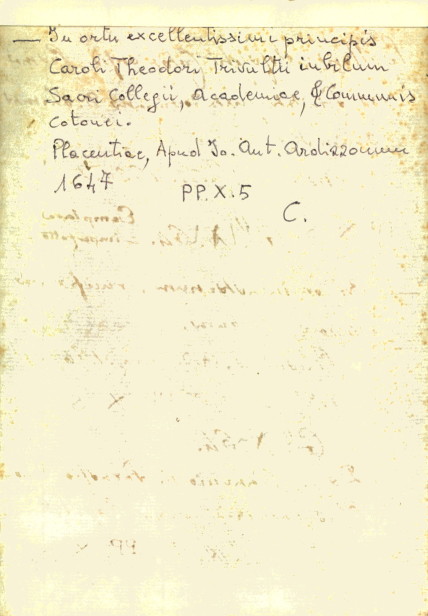 — In ortu excellentissimi principis
Caroli Theodori Trivultii iubilum
Sacri Collegii, Academiae, & Communis
Cotonei.
Placentiae, Apud Io. Ant. Ardizzonum
1647
PP. X. 5
C.